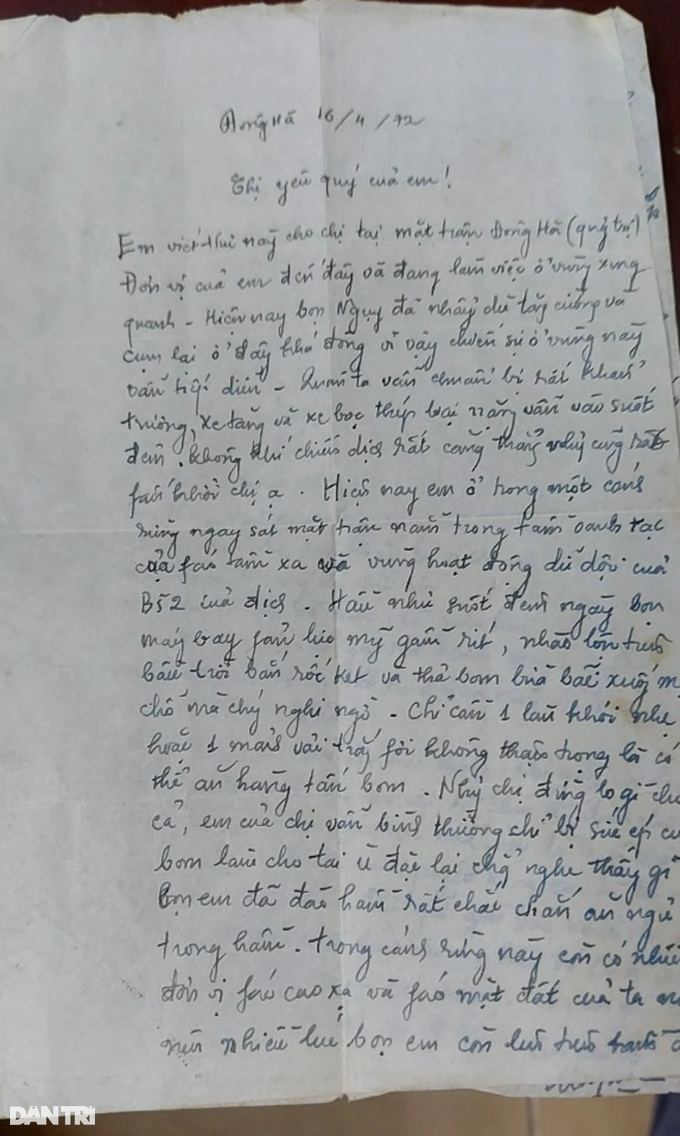 Đông Hà 16/4/72
Chị yêu quý của em!
Em viết thư này cho chị tại mặt trận Đông Hà (quảng trị)
Đơn vị của em đến đây và đang làm việc ở vùng xung
quanh - Hiện nay bọn Ngụy đã nhảy dù tăng cường và
cụm lại ở đây khá đông vì vậy chiến sự ở vùng này
vẫn tiếp diễn - Quân ta vẫn chuẩn bị rất khẩn
trương, xe tăng và xe bọc thép loại nặng vẫn vào suốt
đêm. không khí chiến dịch rất căng thẳng nhưng cũng rất
phấn khởi chị ạ. Hiện nay em ở trong một cánh
rừng ngay sát mặt trận nằm trong tầm oanh tạc
của pháo tầm xa và vùng hoạt động dữ dội của
B52 của địch. Hầu như suốt đêm ngày bọn
máy bay phản lực mỹ gầm rít, nhào lộn trên
bầu trời bắn rốc két và thả bom bừa bãi xuống
chỗ mà chúng nghi ngờ - Chỉ cần 1 làn khói nhẹ
hoặc 1 mảnh vải trắng phơi không thận trọng là có
thể ăn hàng tấn bom. Nhưng chị đừng lo gì
cả, em của chị vẫn bình thường chỉ bị sức ép
bom làm cho tai ù đặc lại chẳng nghe thấy gì
Bọn em đã đào hầm rất chắc chắn ăn ngủ
trong hầm. trong cánh rừng này còn có nhiều
đơn vị pháo cao xạ và pháo mặt đất của ta
nên nhiều lúc bọn em còn
DÂN TRÍ